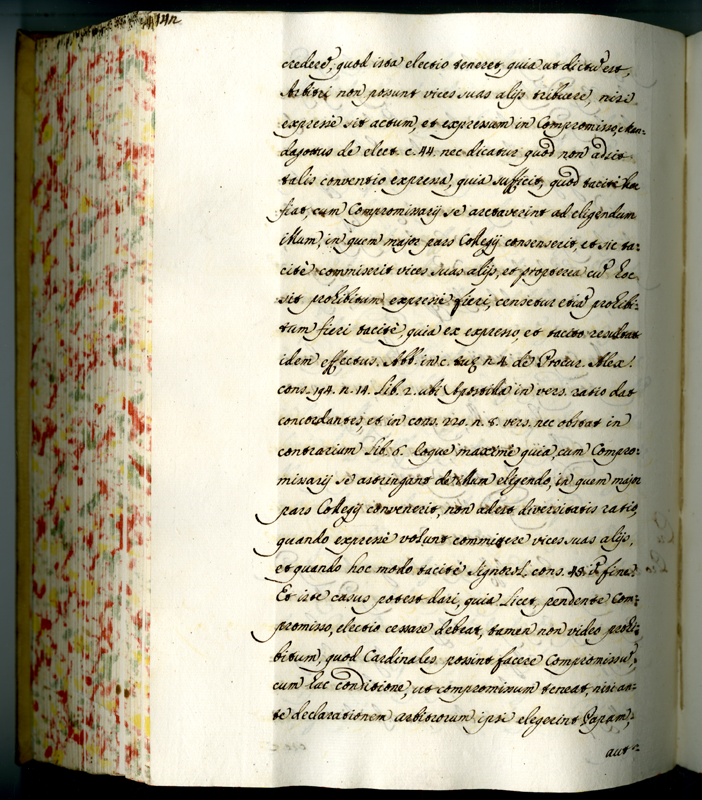 credere, quod ista electio teneret, quia ut dictũ est,
Arbitri non possunt vices suas alijs tribuere, nisi
expresse sit actum, et expressum in Compromisso,
de elect. c. 44. nec dicatur quod non adsit
talis conventio expressa, quia sufficit, quod tacite
fiat, cum Compromissarij se arctaverint ad eligendum
illum, in quem major pars Collegij consenserit, et sic ta=
cite commiserit vices suas alijs, et propterea cũ hoc
sit prohibitum expresse fieri, censetur etiã prohibi=
tum fieri tacite, quia ex expresso, et tacito resultat
idem effectus. Abb. in c. n. 4. de Procur. Alex.
cons. 194. n. 14. lib. 2. ubi Apostilla in vers. ratio dat
concordantes, et in cons. 220. n. 8. vers. nec obstat in
contrarium lib. 6. eoque maxime quia, cum Compro=
missarij se astringant de illum eligendo, in quem major
pars Collegij convenerit, non adest diversitatis ratio,
quando expresse volunt committere vices suas alijs,
et quando hoc modo tacite Signorol. cons. 48. in fine.
Et iste casus potest dari, quia licet, pendente Com=
promisso, electio cessare debeat, tamen non video prohi=
bitum, quod Cardinales possint facere Compromissũ,
cum hac conditione, ut compromissum teneat, nisi an=
te declarationem arbitrorum ipsi elegerint Papam,
aut